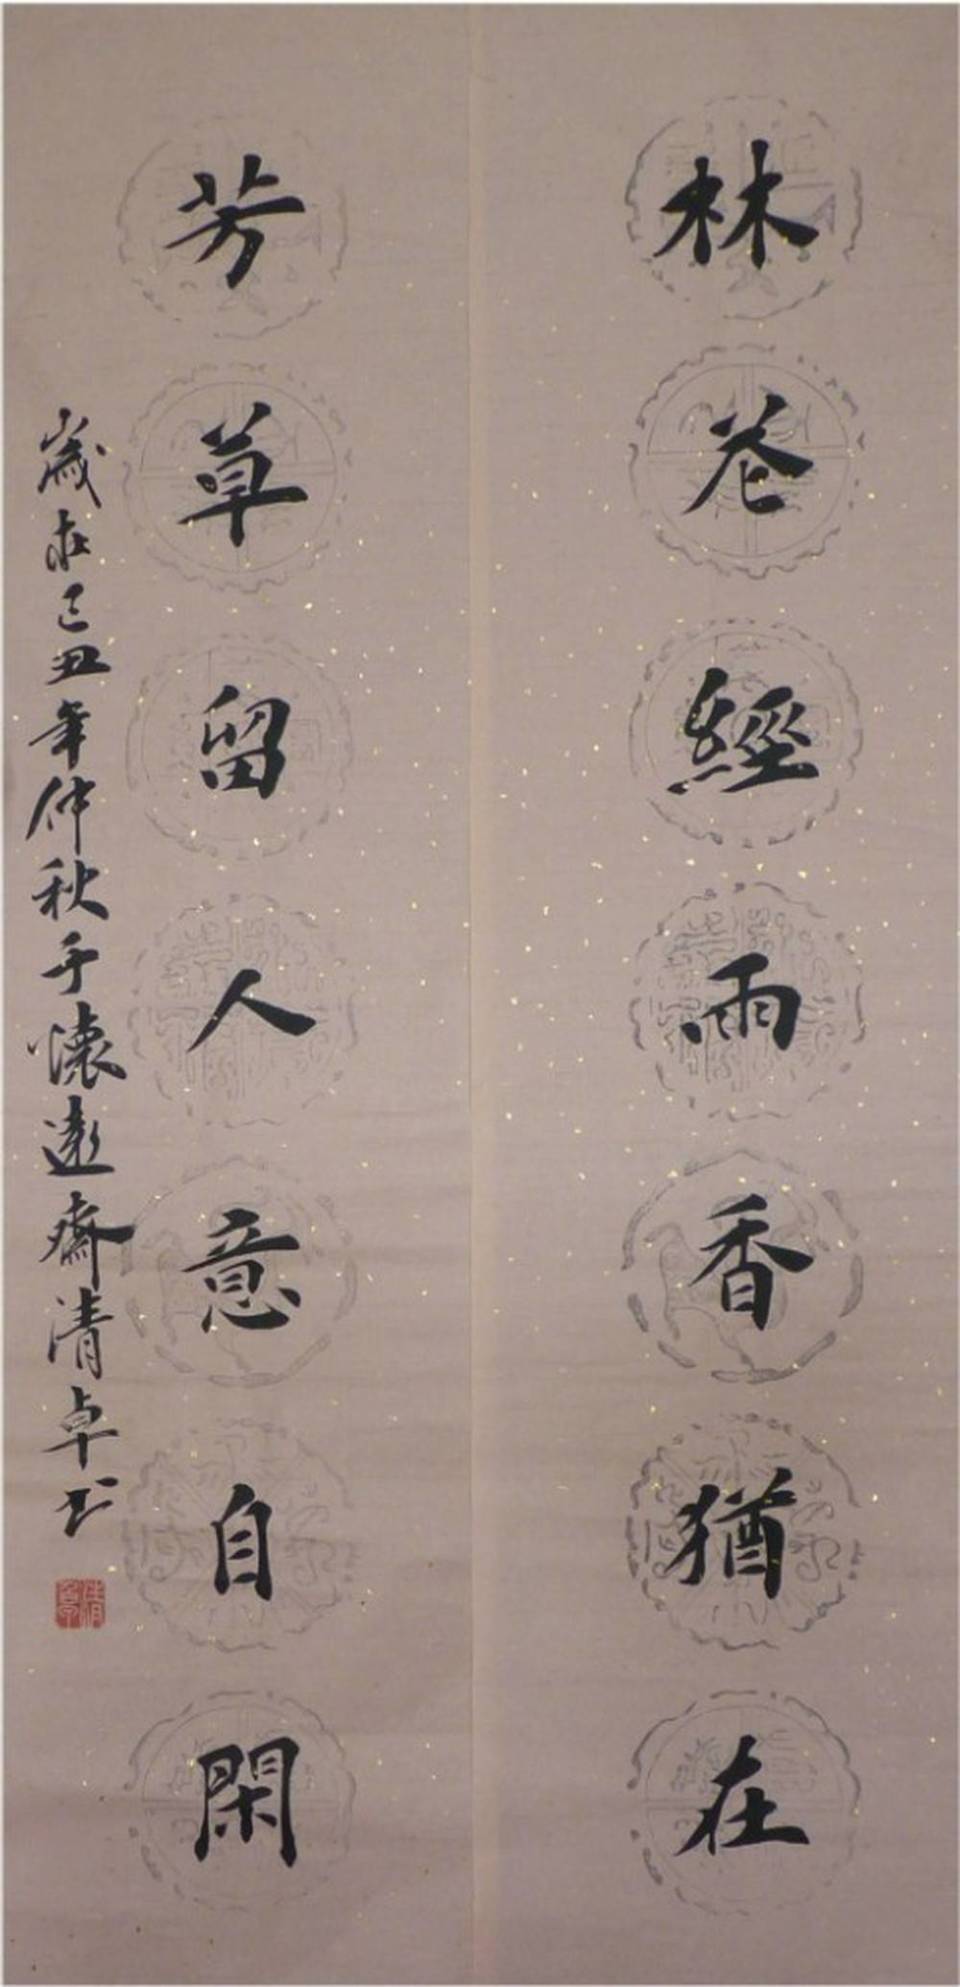 林花經雨香猶在
芳草留人意自閑
歲在己丑年仲秋于懷遠齋清卓書
清卓